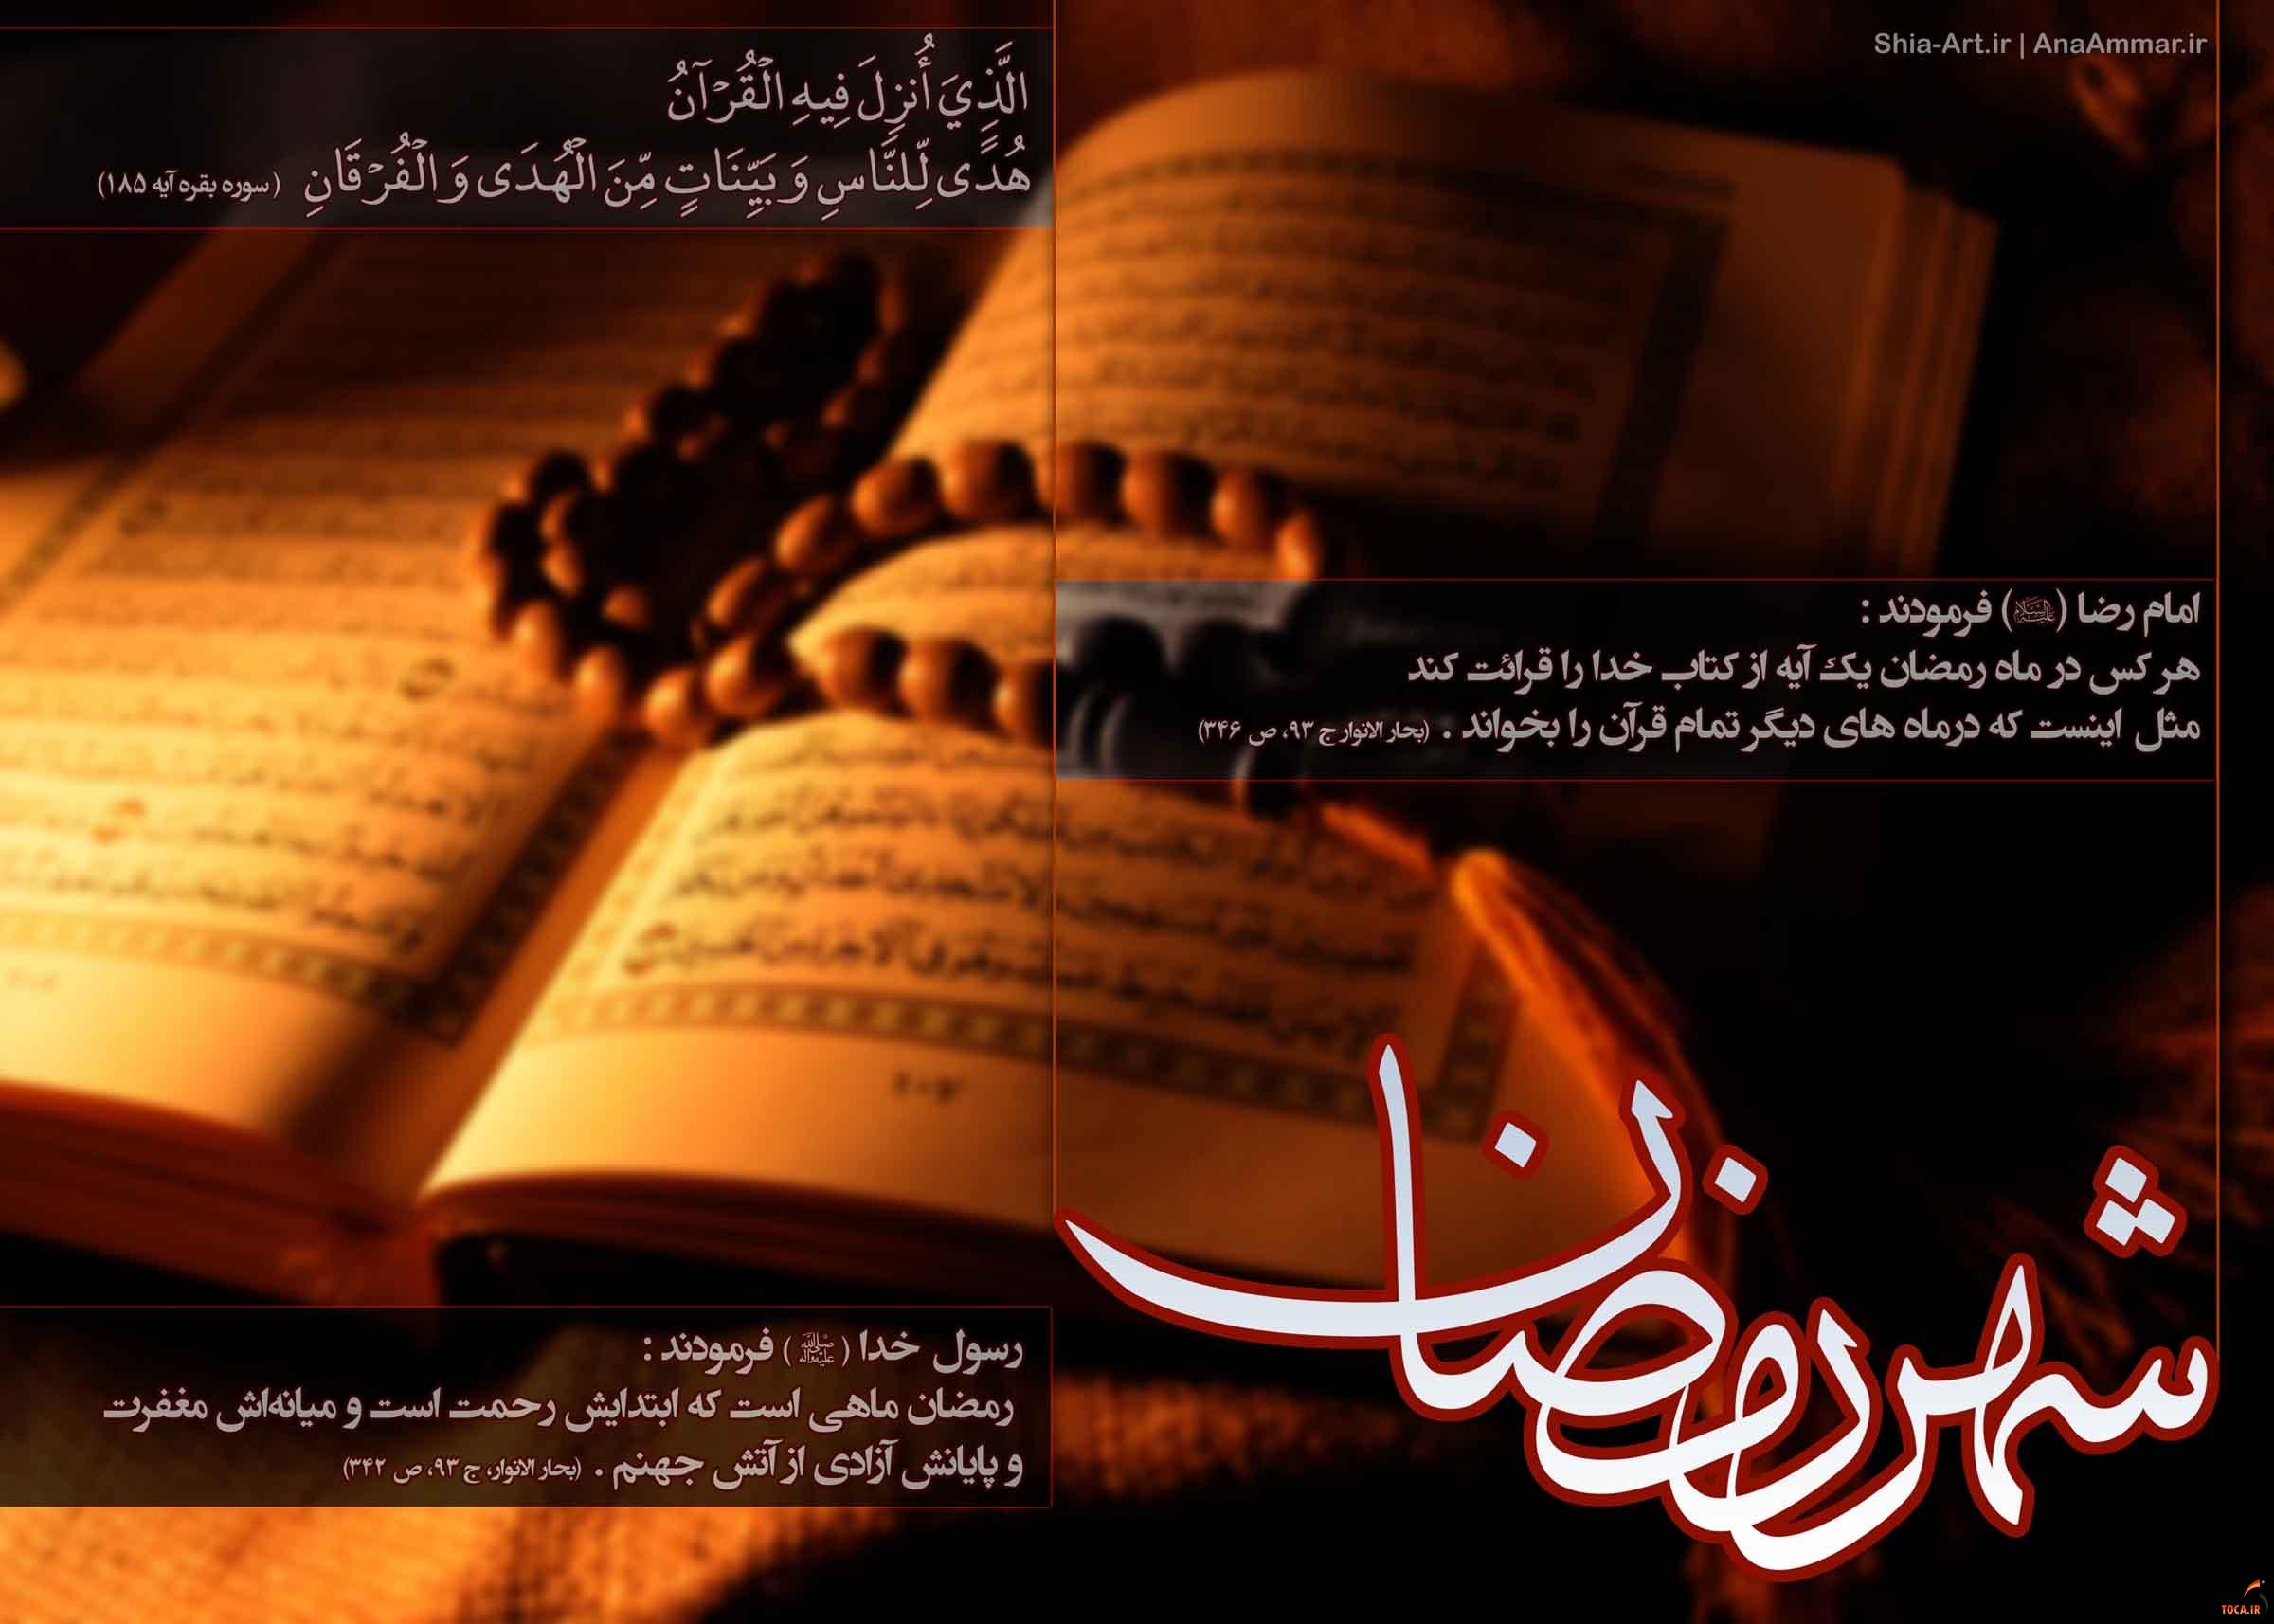 Shia-Art.ir | AnaAmmar.ir
الَّذِيَ أُنزِلَ فِيهِ الْقُرْآنُ
هُدًى لِّلنَّاسِ وَ بَيِّنَاتٍ مِّنَ الْهُدَى وَ الْفُرْقَانِ (سوره بقره آیه ۱۸۵)
امام رضا (علیه السلام) فرمودند :
هر کس در ماه رمضان یک آیه از کتاب خدا را قرائت کند
مثل اینست که درماه های دیگر تمام قرآن را بخواند . (بحار الانوار ج ۹۳، ص ۳۴۶)
شهر رمضان
رسول خدا (صلی الله علیه وآله) فرمودند :
رمضان ماهی است که ابتدایش رحمت است و میانه‌اش مغفرت
و پایانش آزادی از آتش جهنم . (بحار الانوار، ج ۹۳، ص ۳۴۲)
TOCA.IR